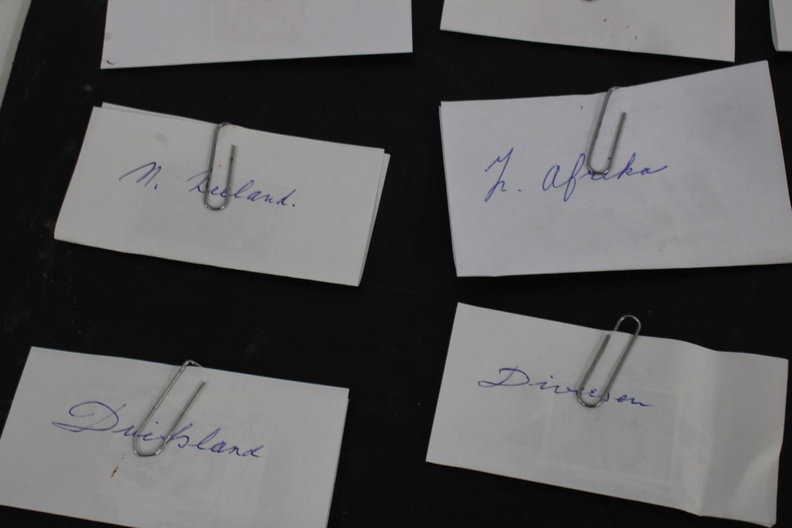 N. Zeeland.
Z. Afrika
Duitsland
Diversen